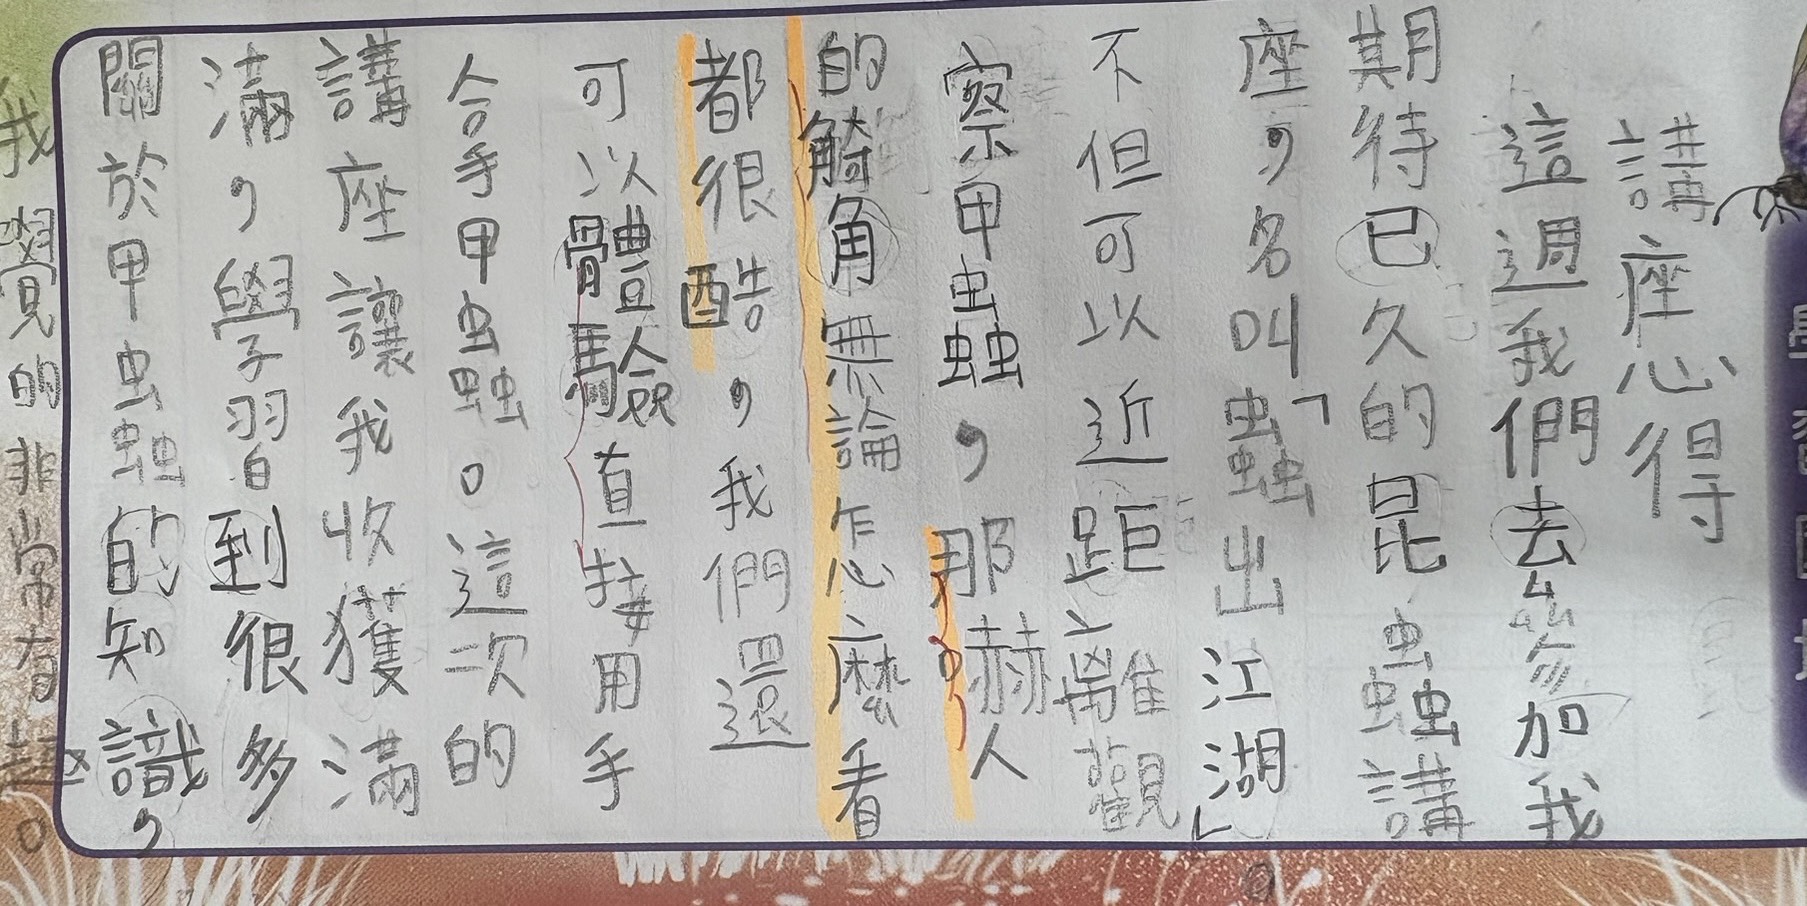 講座心得
這週我們去參加我
期待已久的昆蟲講
座，名叫「蟲出江湖」。
不但可以近距離觀
察甲蟲，那赫人
的觭角無論怎麼看
都很酷，我們還
可以體驗直接用手
拿甲蟲。這次的
講座讓我收獲滿
滿，學習到很多
關於甲蟲的知識，
我覺的非常有趣。